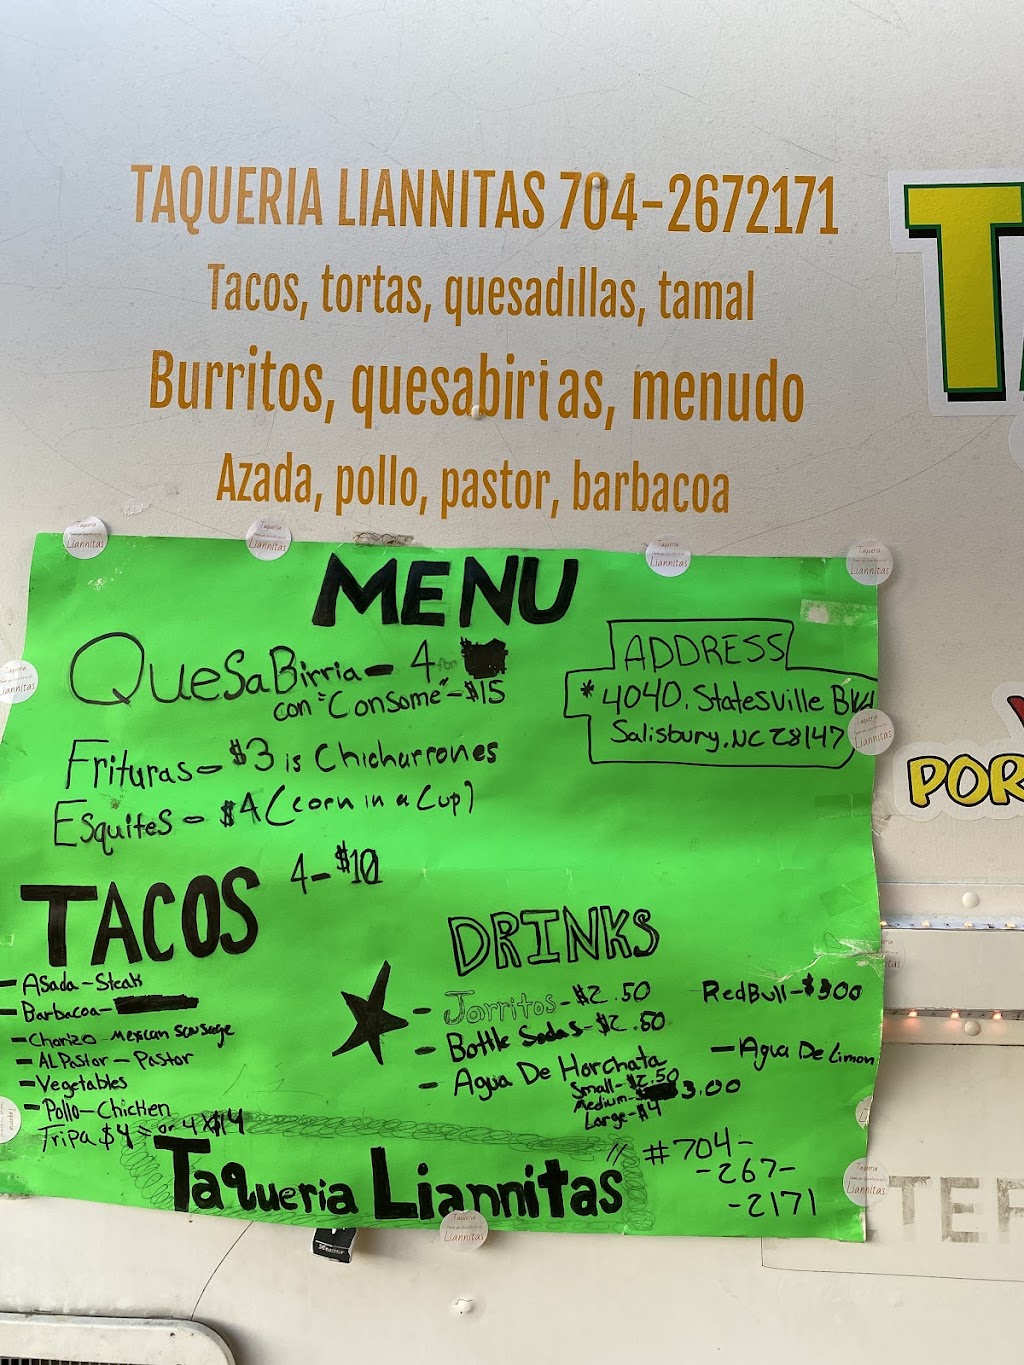 TAQUERIA LIANNITAS 704-2672171
Tacos, tortas, quesadillas, tamal
Burritos, quesabirias, menudo
Azada, pollo, pastor, barbacoa
MENU
QuesaBirria - 4 for
con "Consome" - $15
Frituras - $3 is Chicharrones
Esquites - $4 (corn in a Cup)
ADDRESS
* 4040. Statesville Blvd
Salisbury, NC 28147
TACOS 4-$10
- Asada - Steak
- Barbacoa -
- Chorizo - Mexican sausage
- Al Pastor - Pastor
- Vegetables
- Pollo - Chicken
Tripa $4 - or 4 x $14
DRINKS
- Jarritos - $2.50
- Bottle Sodas - $2.50
- Agua De Horchata
Small - $2.50
Medium - $3.00
Large - $4
RedBull - $3.00
- Agua De Limon
Taqueria Liannitas
# 704-
-267-
-2171
POR
TER
Taqueria
Liannitas
Taqueria
Liannitas
Taqueria
Liannitas
Taqueria
Liannitas
Taqueria
Liannitas
Taqueria
Liannitas
Taqueria
Liannitas
Taqueria
Liannitas